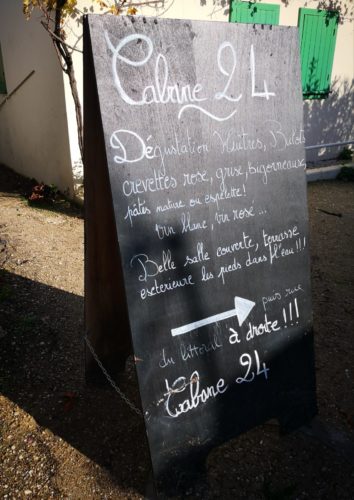 Cabane 24
Dégustation Huîtres, Bulots
crevettes rose, grise, bigorneaux,
pâtés nature ou espelette!
Vin blanc, vin rosé...
Belle salle couverte, terrasse
exterieure les pieds dans l'eau!!!
puis rue
du littoral à droite!!!
Cabane 24